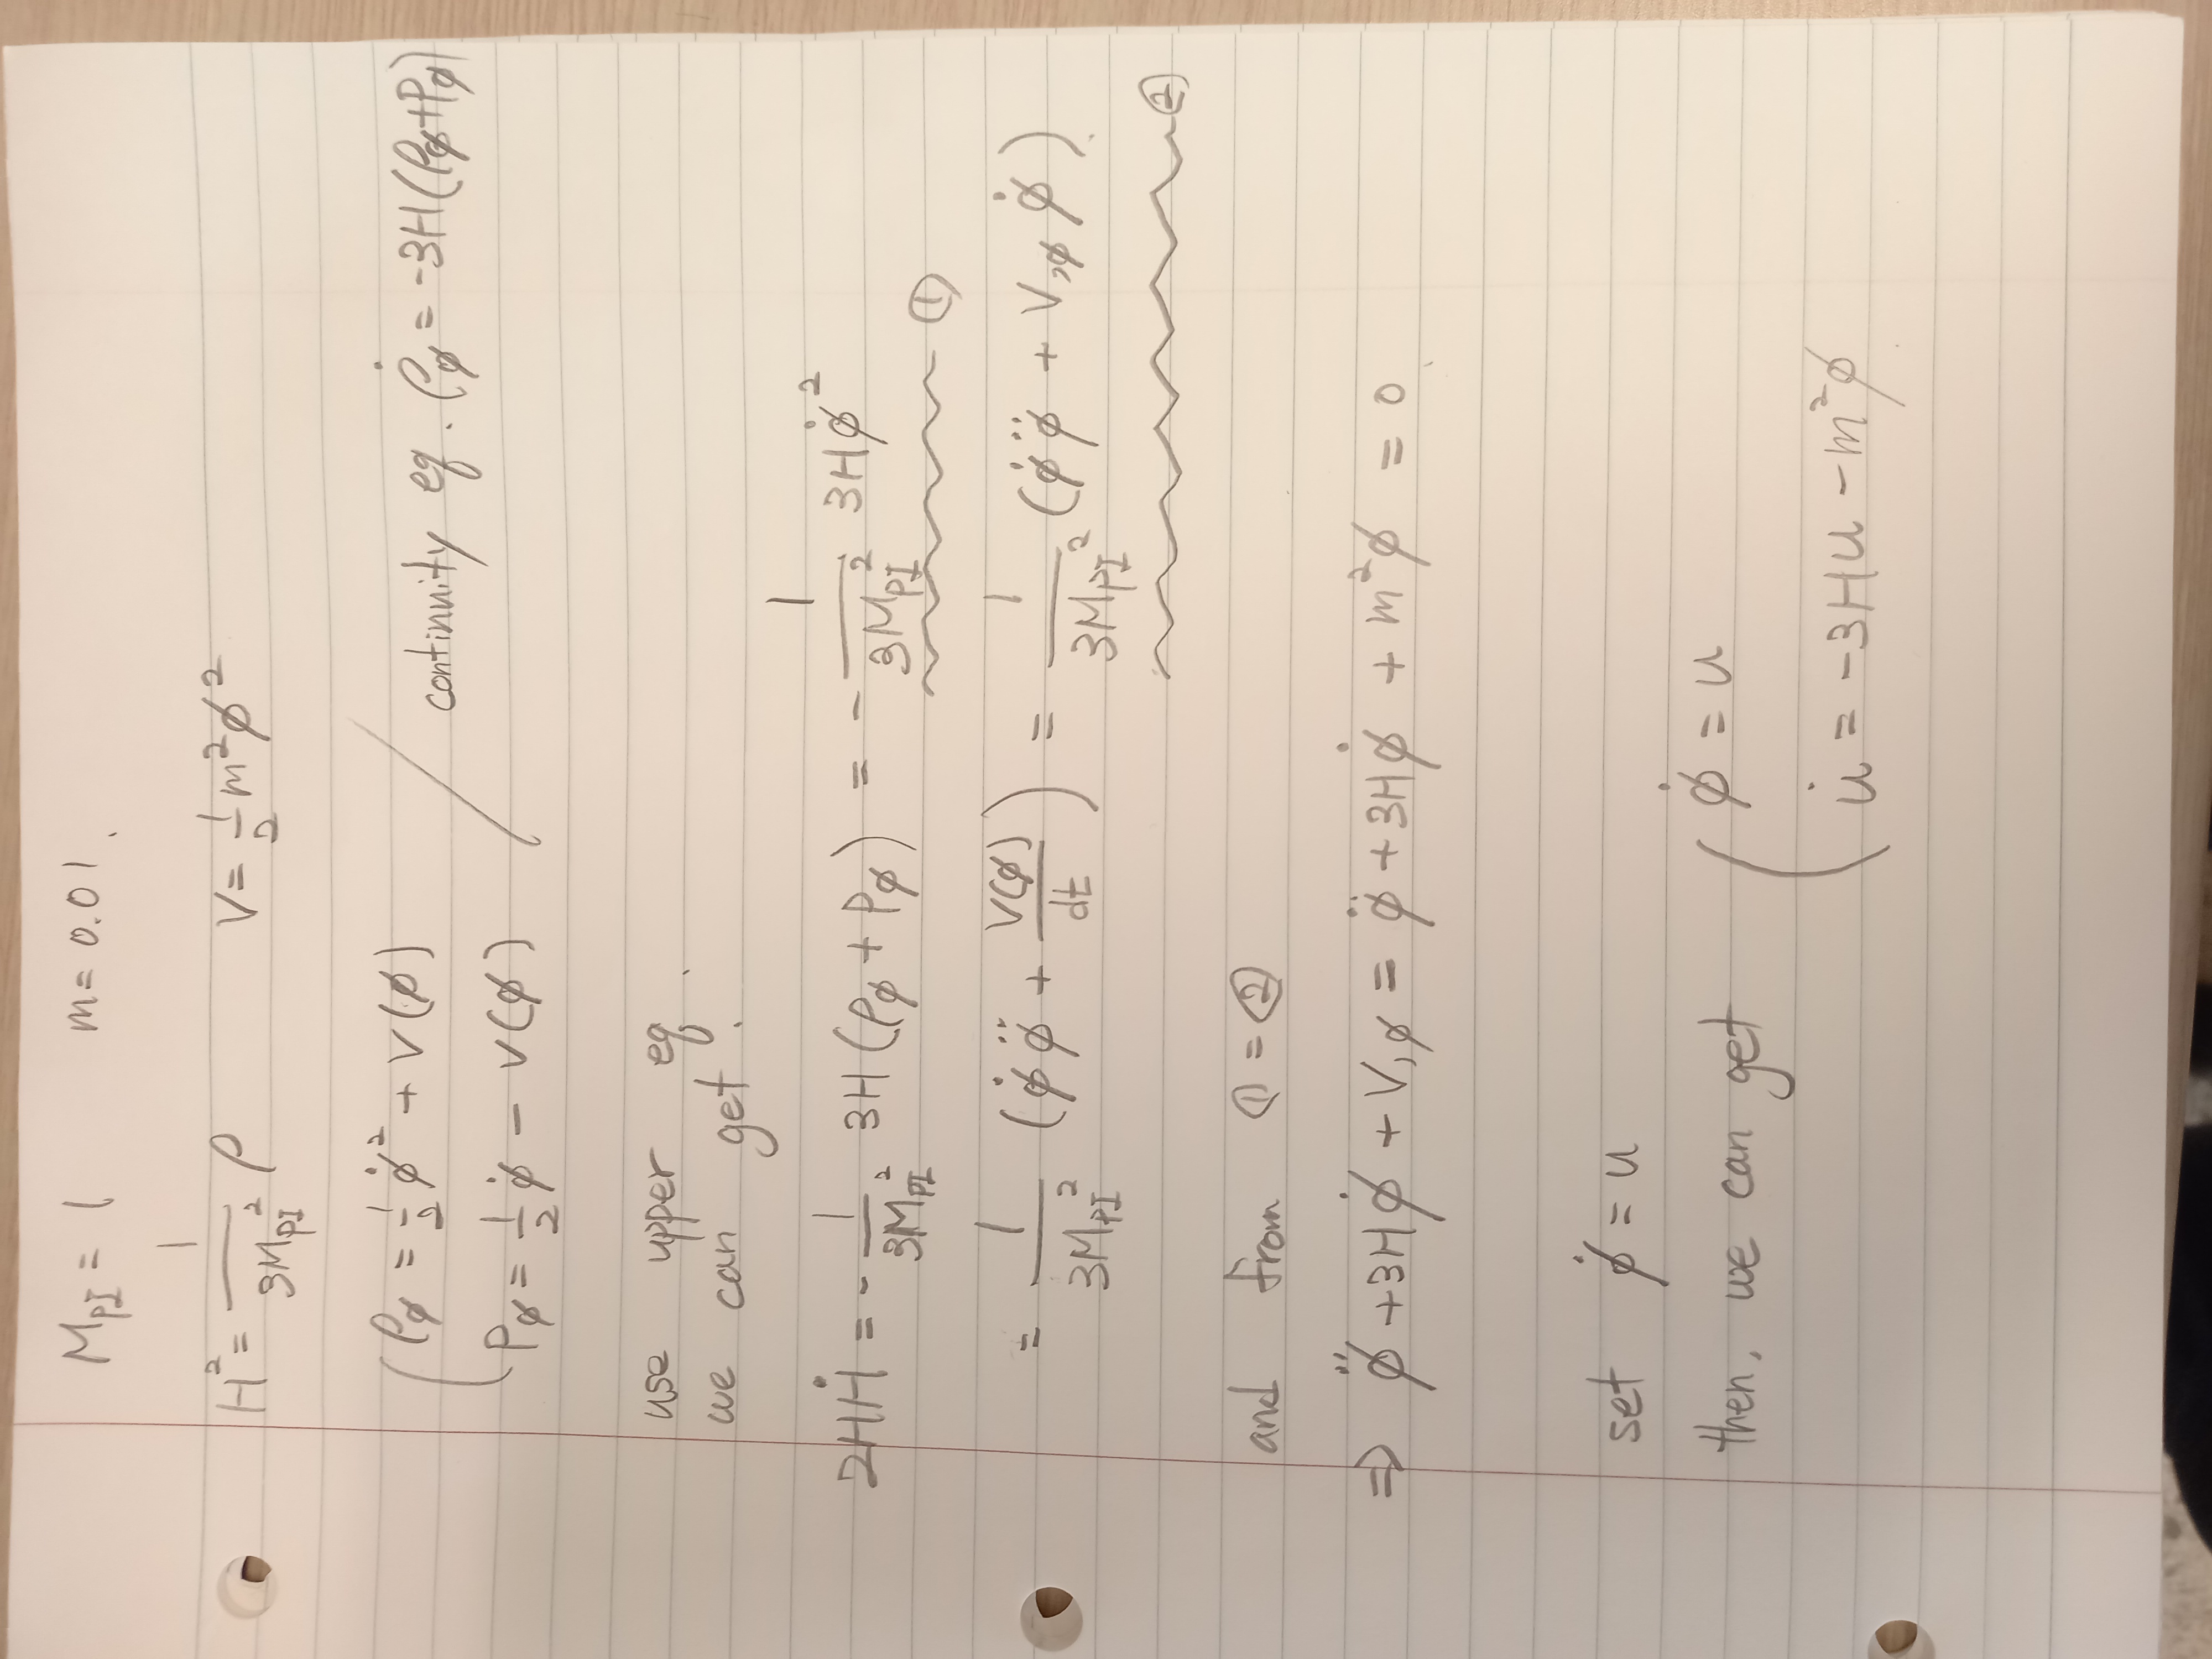 M_PI = 1 m = 0.01.
H² = 1/(3M_PI²) ρ V = 1/2 m²ϕ²
ρ_ϕ = 1/2 ϕ̇² + V(ϕ)
P_ϕ = 1/2 ϕ̇ − V(ϕ)
continuity eq. ρ̇_ϕ = −3H(ρ_ϕ+P_ϕ)
use upper eq.
we can get.
2HḢ = − 1/(3M_PI²) 3H(ρ_ϕ + P_ϕ) = − 1/(3M_PI²) 3Hϕ̇² ①
= 1/(3M_PI²) (ϕ̇ϕ̈ + V(ϕ)/dt) = 1/(3M_PI²) (ϕ̇ϕ̈ + V,ϕ ϕ̇). ②
and from ① = ②
⇒ ϕ̈ + 3Hϕ̇ + V,ϕ = ϕ̈ + 3Hϕ̇ + m²ϕ = 0.
set ϕ̇ = u
then, we can get ϕ̇ = u
u̇ = −3Hu − m²ϕ